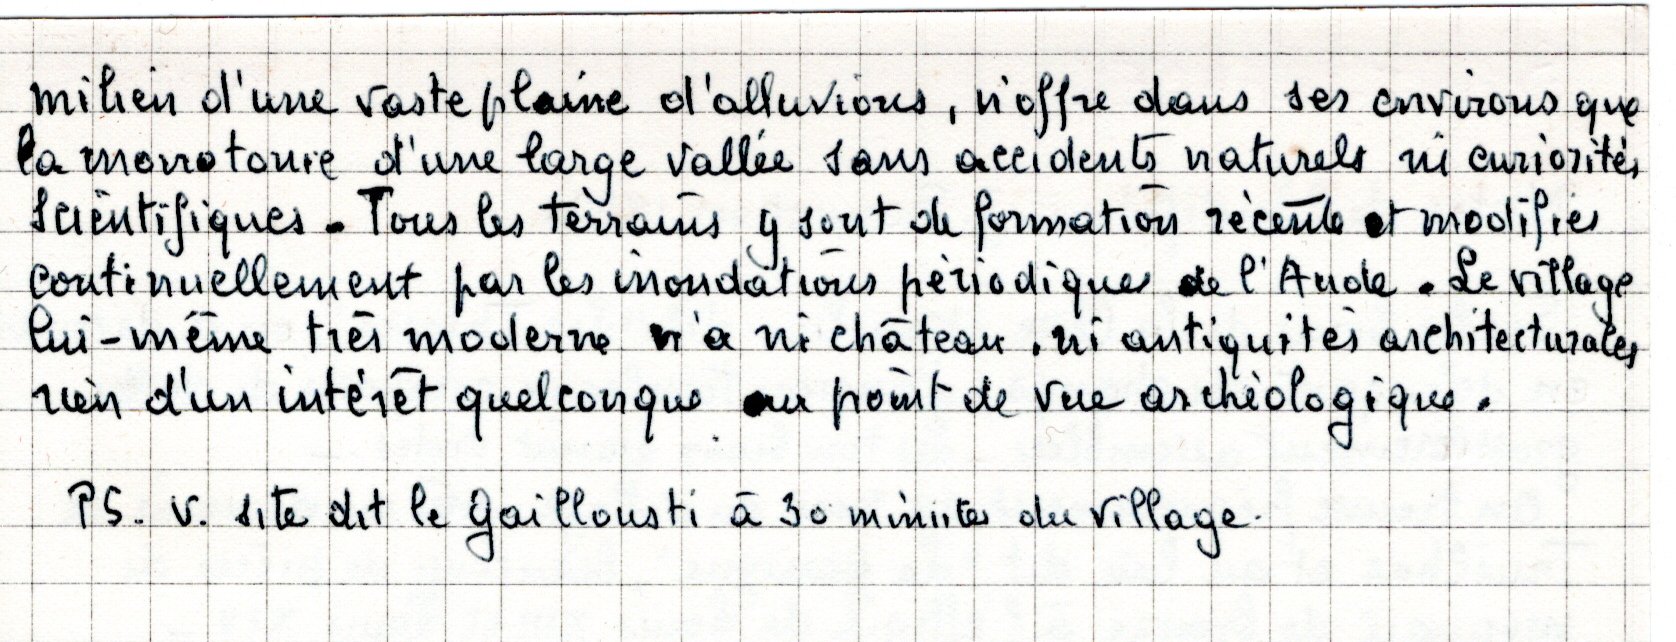 milieu d'une vaste plaine d'alluvions, n'offre dans ses environs que
la monotonie d'une large vallée sans accidents naturels ni curiosités
scientifiques. Tous les terrains y sont de formation récente et modifiés
continuellement par les inondations périodiques de l'Aude. Le village
lui-même très moderne n'a ni château, ni antiquités architecturales,
rien d'un intérêt quelconque au point de vue archéologique.
PS. v. site dit le Gaillousti à 30 minutes du village.